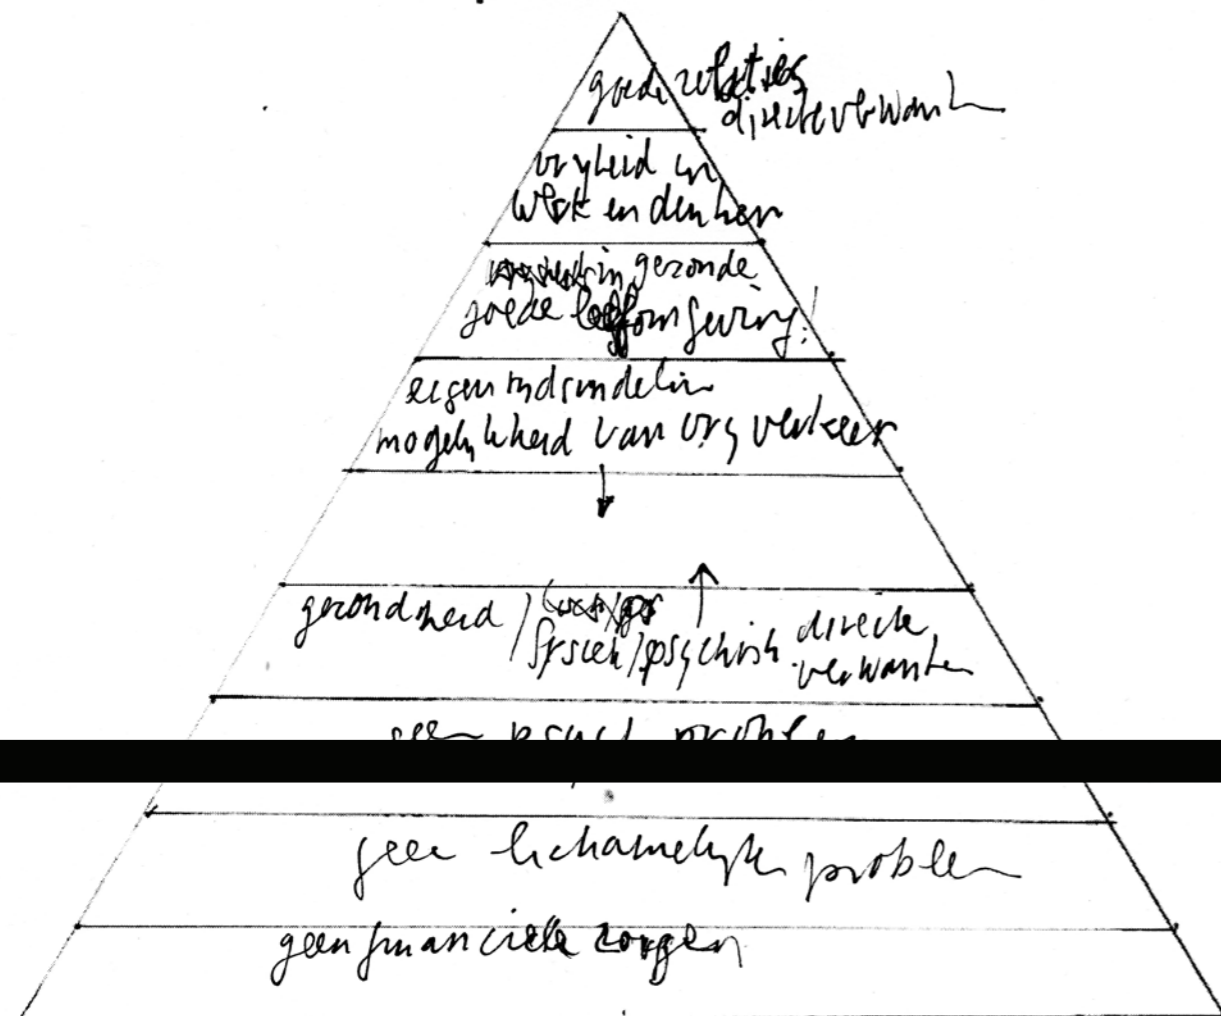 goede relaties
directe verwant
vryheid in
werk en denken
in gezonde
goede leefomgeving!
eigen tydsindelin
mogelykheid van vry verkeer
gezondheid /
fysiek/psychish directe
verwanten
geen psych problem
geen lichamelyke problem
geen financiele zorgen